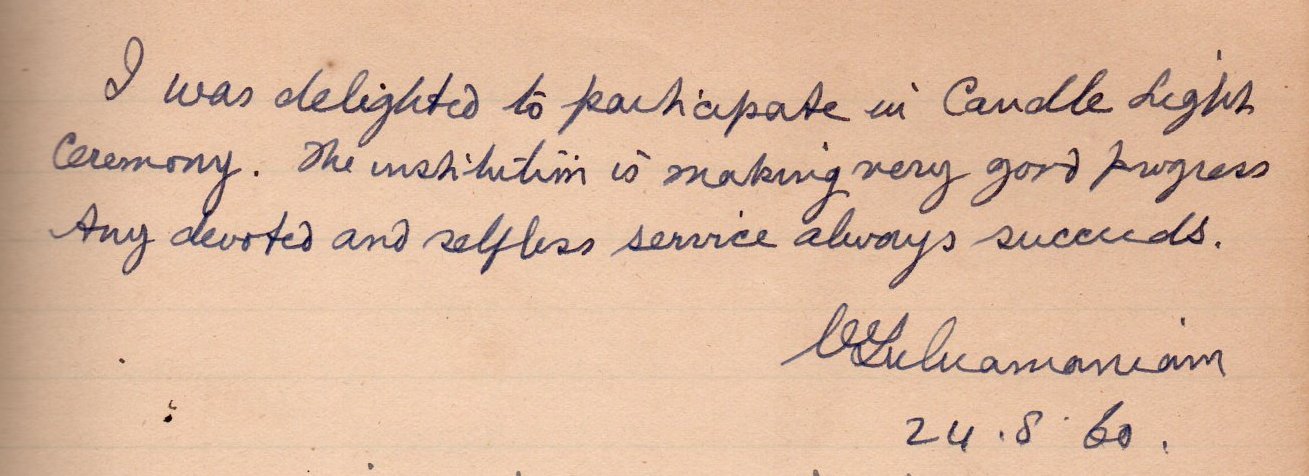 I was delighted to participate in Candle Light
Ceremony. The institution is making very good progress
Any devoted and selfless service always succeeds.
24.8.60.